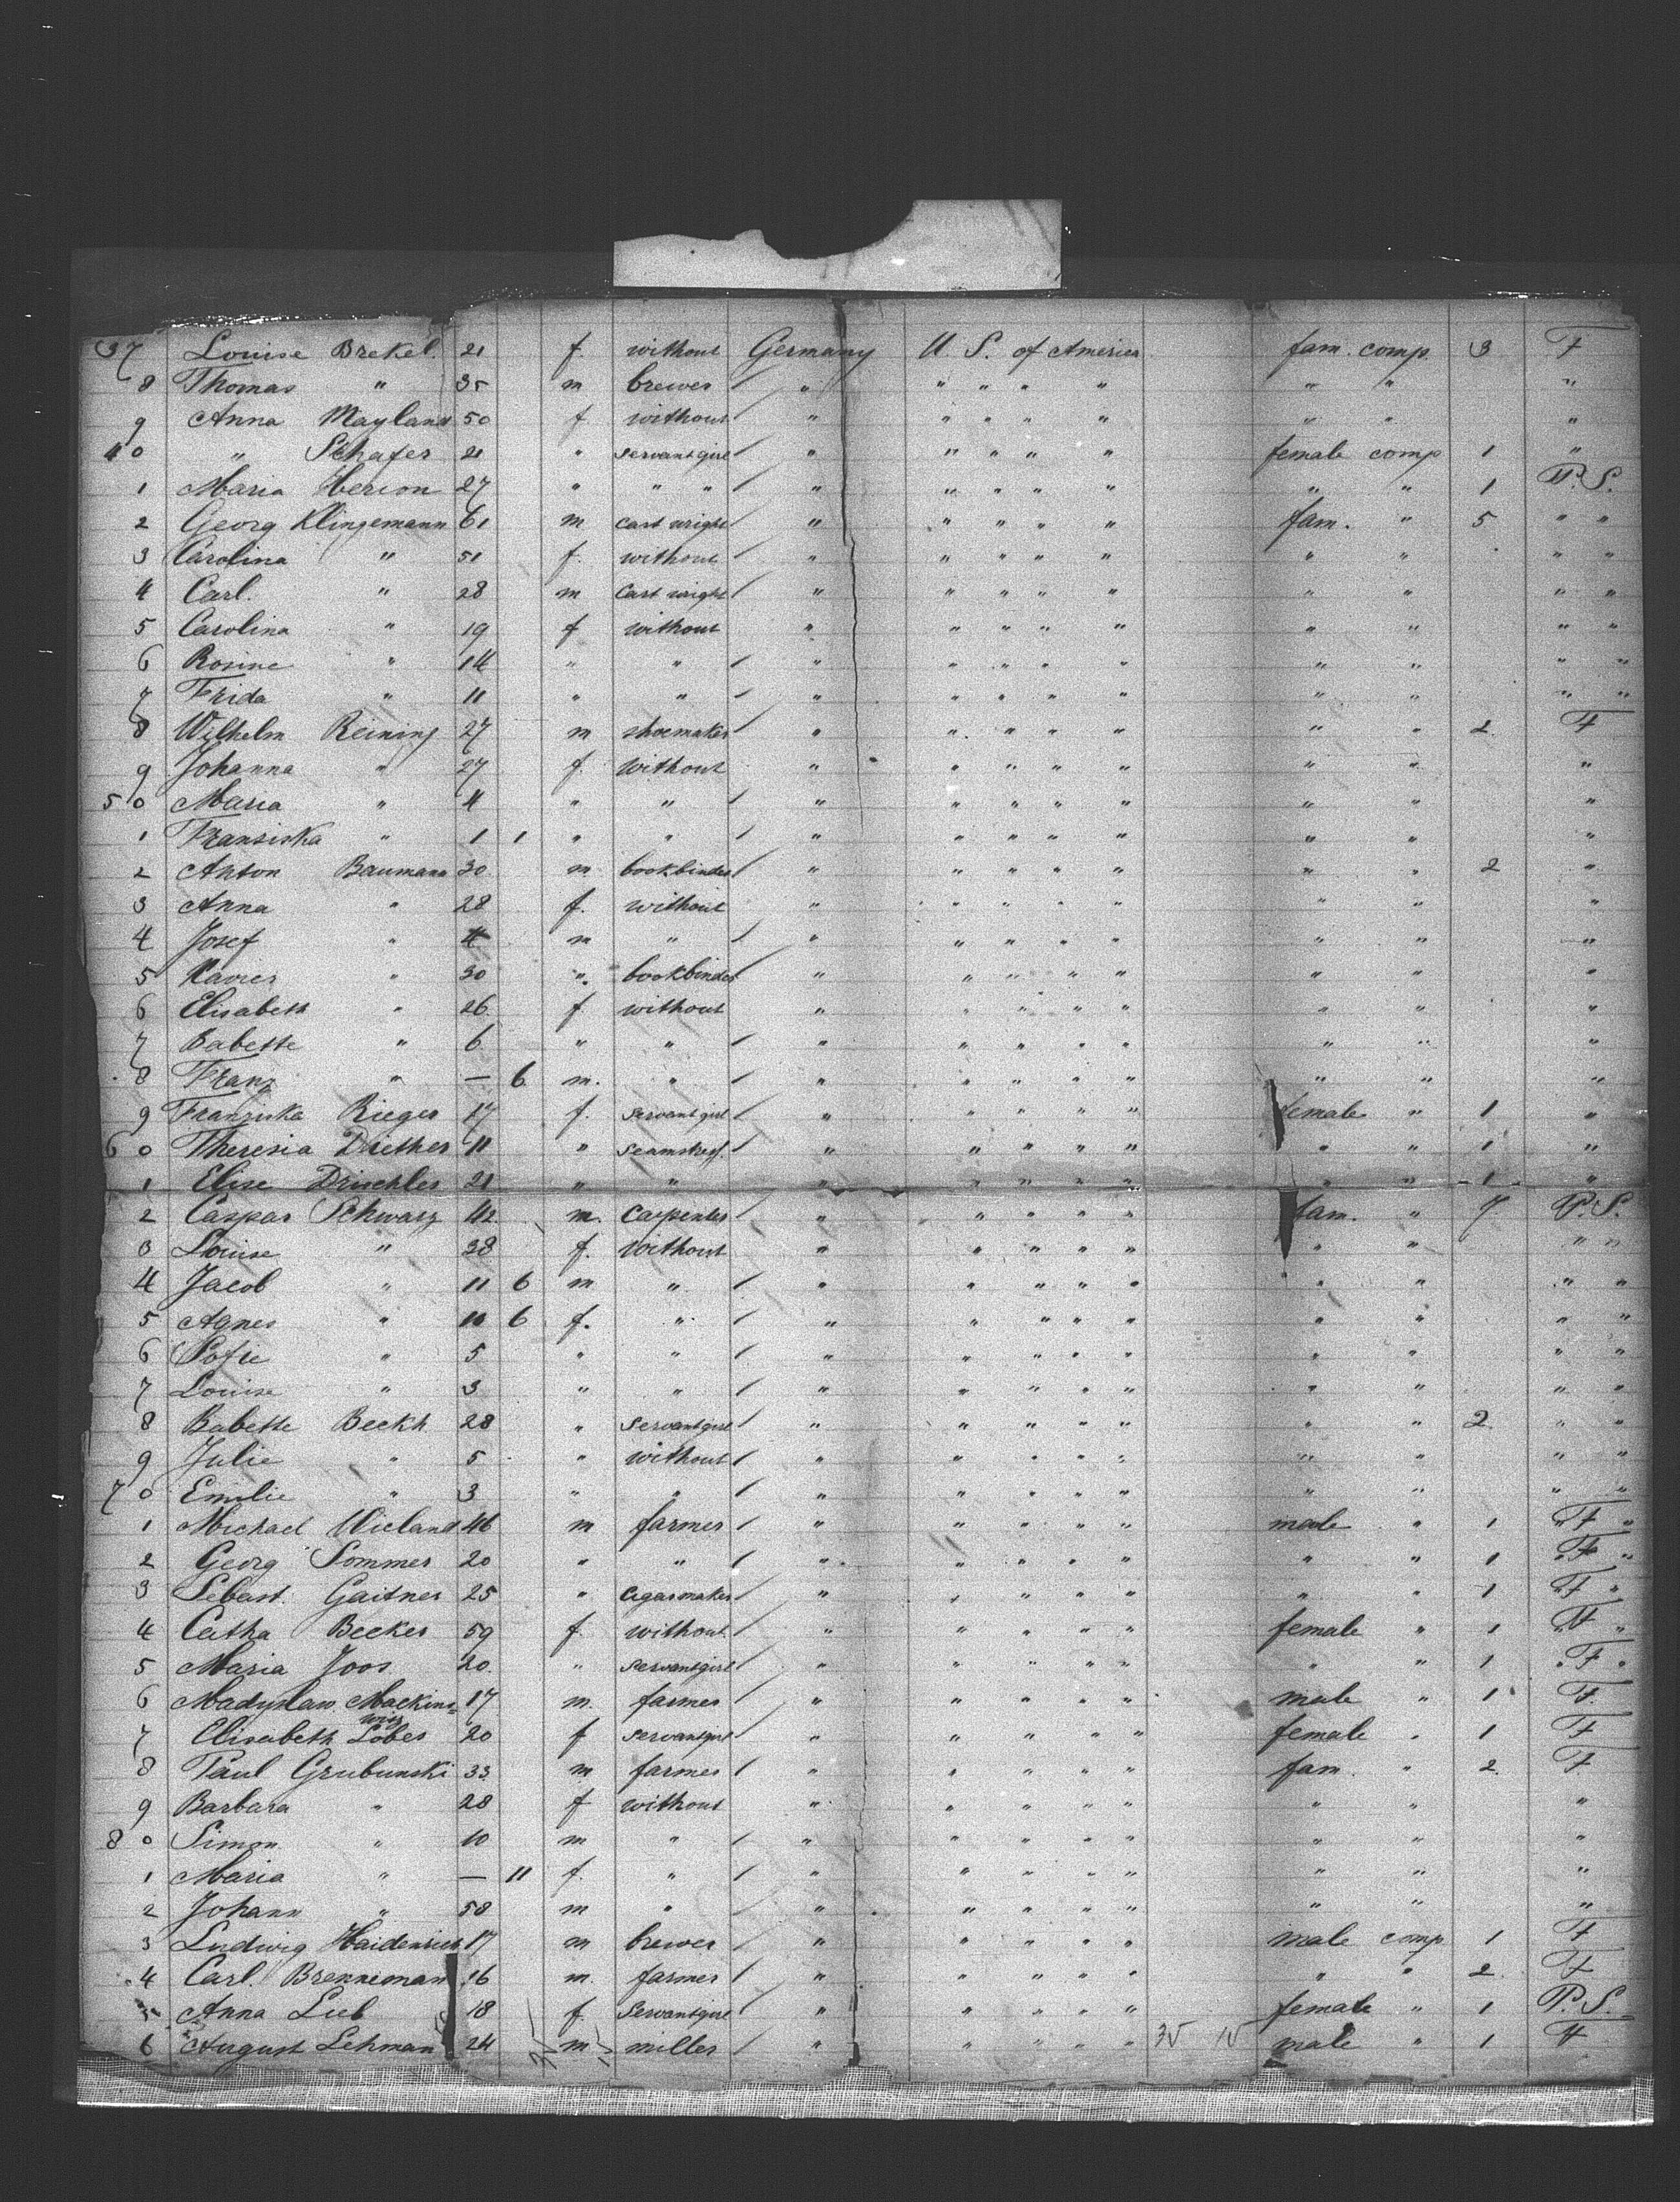 37 Louise Brekel. 21 f. without Germany U. S. of America fam. comp. 3 F
8 Thomas " 35 m brewer " " " " " " " "
9 Anna Mayland 50 f without " " " " " " " "
40 " Schafer 21 " servantgirl " " " " " female comp 1 "
1 Maria Herion 27 " " " " " " " " " " 1 P. S.
2 Georg Klingemann 61 m cart wright " " " " " fam. " 5 " "
3 Carolina " 51 f. without " " " " " " " " "
4 Carl. " 28 m cart wright " " " " " " " " "
5 Carolina " 19 f without " " " " " " " " "
6 Rosine " 14 " " " " " " " " " " "
7 Frida " 11 " " " " " " " " " " "
8 Wilhelm Reining 27 m shoemaker " " " " " " " 2 F
9 Johanna " 27 f. without " " " " " " " "
50 Maria " 4 " " " " " " " " " "
1 Franziska " 1 1 " " " " " " " " " "
2 Anton Baumann 30 m bookbinder " " " " " " " 2 "
3 Anna " 28 f. without " " " " " " " "
4 Josef " 4 m " " " " " " " " "
5 Xaver " 30 " bookbinder " " " " " " " "
6 Elisabeth " 26 f without " " " " " " " "
7 Babette " 6 " " " " " " " " " "
8 Franz " — 6 m. " " " " " " " " "
9 Franziska Rieger 17 f. servantgirl " " " " " female " 1 "
60 Theresia Diether 11 " seamstress. " " " " " " " 1 "
1 Elise Drischler 21 " " " " " " " " " 1 "
2 Caspar Schwarz 42 m. carpenter " " " " " fam. " 7 P. S.
3 Louise " 38 f. without " " " " " " " " "
4 Jacob " 11 6 m " " " " " " " " " "
5 Agnes " 10 6 f. " " " " " " " " " "
6 Sofie " 5 " " " " " " " " " " "
7 Louise " 3 " " " " " " " " " " "
8 Babette Beckh 28 " servantgirl " " " " " " " 2 " "
9 Julie " 5 " without " " " " " " " " "
70 Emilie " 3 " " " " " " " " " " "
1 Michael Wieland 46 m farmer " " " " " male " 1 " F "
2 Georg Sommer 20 " " " " " " " " " 1 " F "
3 Sebast. Gaitner 25 " cigarmaker " " " " " " " 1 " F "
4 Catha Becker 59 f. without " " " " " female " 1 " F "
5 Maria Joos 20 " servantgirl " " " " " " " 1 " F "
6 Mackinz= 17 m. farmer " " " " " male " 1 F.
7 Elisabeth Lobes 20 f servantgirl " " " " " female " 1 F
8 Paul Grubunski 33 m farmer " " " " " fam. " 2 F
9 Barbara " 28 f without " " " " " " " "
80 Simon " 10 m " " " " " " " " "
1 Maria " — 11 f. " " " " " " " " "
2 Johann " 58 m " " " " " " " " "
3 Ludwig Haidenrich 17 m brewer " " " " " male comp 1 F
4 Carl. Brenneman 16 m. farmer " " " " " " " 2 F
5 Anna Lieb 18 f. servantgirl " " " " " female " 1 P. S.
6 August Lehman 24 m miller " " " " " male " 1 F